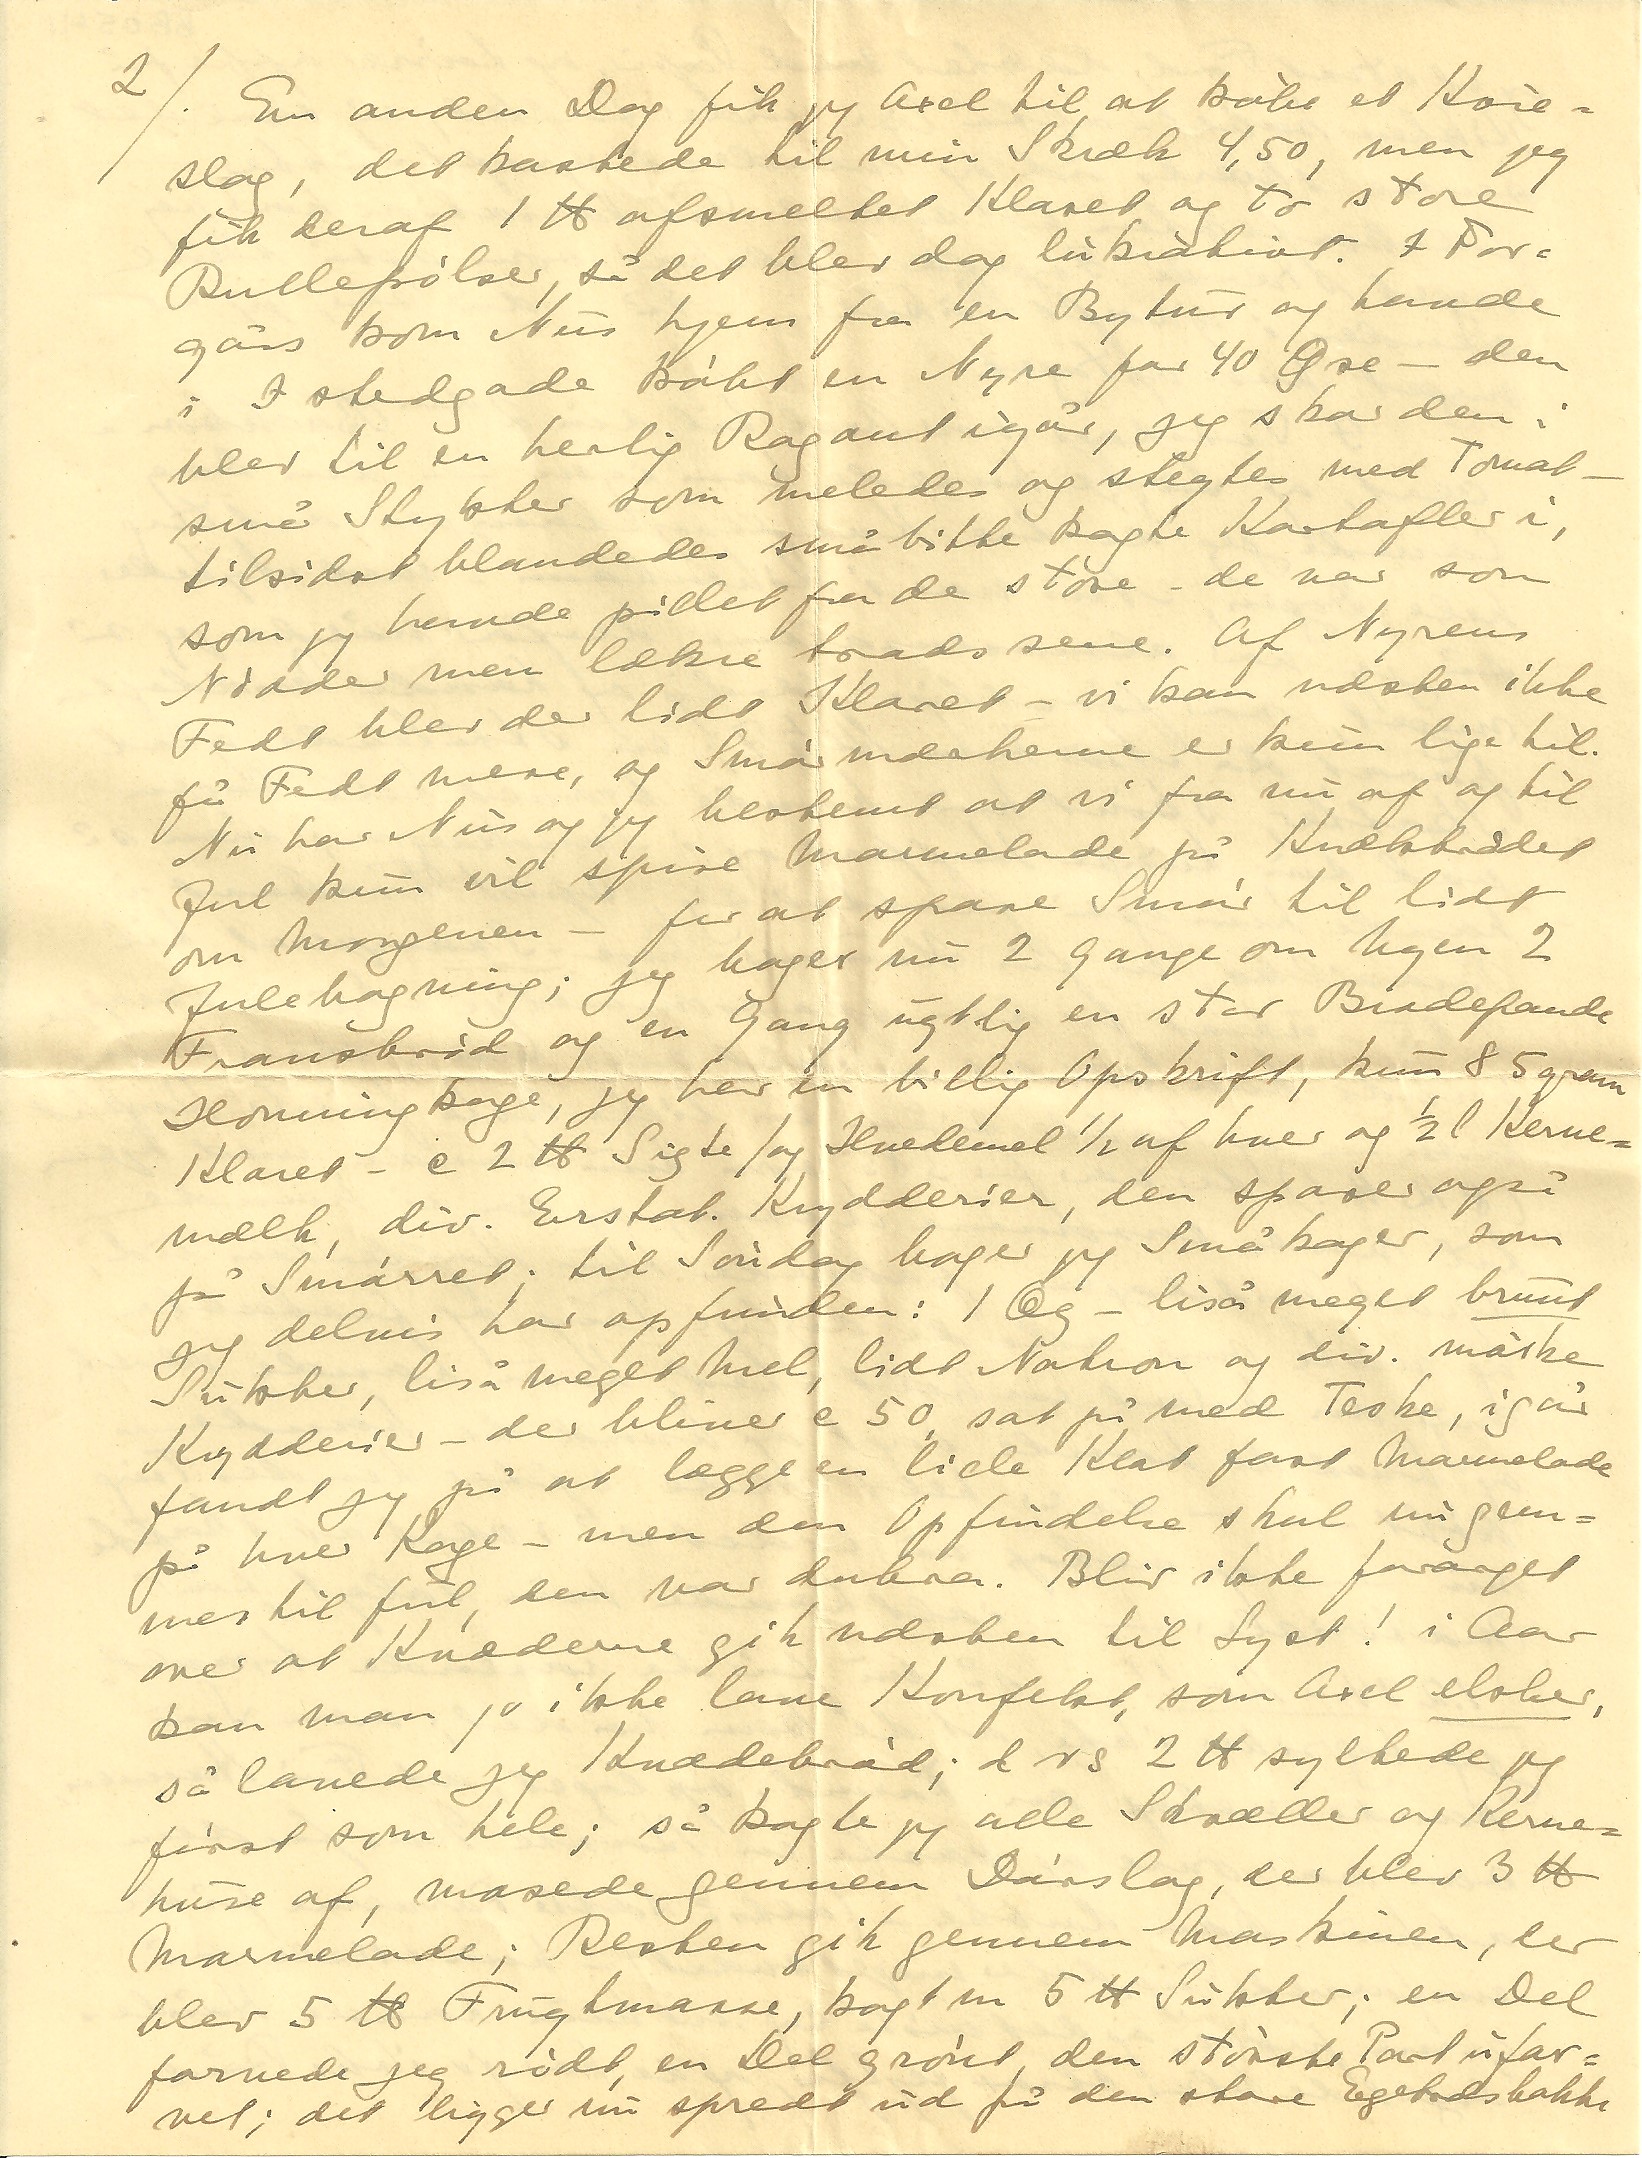 2/. En anden Dag fik jeg Axel til at købe et Køie=
slag, det kostede til min Skræk 4,50, men jeg
fik deraf 1 ℔ afsmeltet Klaret og to store
Rullepølser, så det blev dog lukrativt. I For=
gårs kom Nus hjem fra en Bytur og havde
i Istedgade købt en Nyre for 40 Øre – den
blev til en herlig Ragout igår, jeg skar den i
små Stykker som meledes og stegtes med Tomat –
tilsidst blandedes små bitte kogte Kartofler i,
som jeg havde pillet fra de store – de var som
Nødder men lækre trods sene. Af Nyrens
Fedt blev der lidt Klaret – vi kan næsten ikke
få Fedt mere, og Smørmærkerne er kun lige til.
Nu har Nus og jeg bestemt at vi fra nu af og til
Jul kun vil spise Marmelade på Knækbrødet
om Morgenen – for at spare Smør til lidt
Julebagning; jeg bager nu 2 Gange om Ugen 2
Fransbrød og en Gang ugtlig en stor Bradepande
Honningkage, jeg har en billig Opskrift, kun 85 gram
Klaret – c 2 ℔ Sigte/og Hvedemel ½ af hver og ½ l Kerne=
mælk, div. Erstat. Krydderier, den sparer også
på Smørret; til Søndag bager jeg Småkager, som
jeg delvis har opfunden: 1 Æg – liså meget brunt
Sukker, liså meget Mel, lidt Natron og div. måske
Krydderier – der bliver c 50, sat på med Teske, igår
fandt jeg på at lægge en lille Klat fast Marmelade
på hver Kage – men den Opfindelse skal nu gem=
mes til Jul, den var dubra. Bliv ikke forarget
over at Kvæderne gik næsten til Syst! i Aar
kan man jo ikke lave Konfekt, som Axel elsker,
så lavede jeg Kvædebrød; d v s 2 ℔ syltede jeg
først som hele; så kogte jeg alle Skræller og Kerne=
huse af, masede gennem Dørslag, der blev 3 ℔
Marmelade; Resten gik gennem Maskinen, der
blev 5 ℔ Frugtmasse, kogt m 5 ℔ Sukker; en Del
farvede jeg rødt, en Del grønt, den største Part ufar=
vet; det ligger nu spredt ud på den store Egetræsbakke